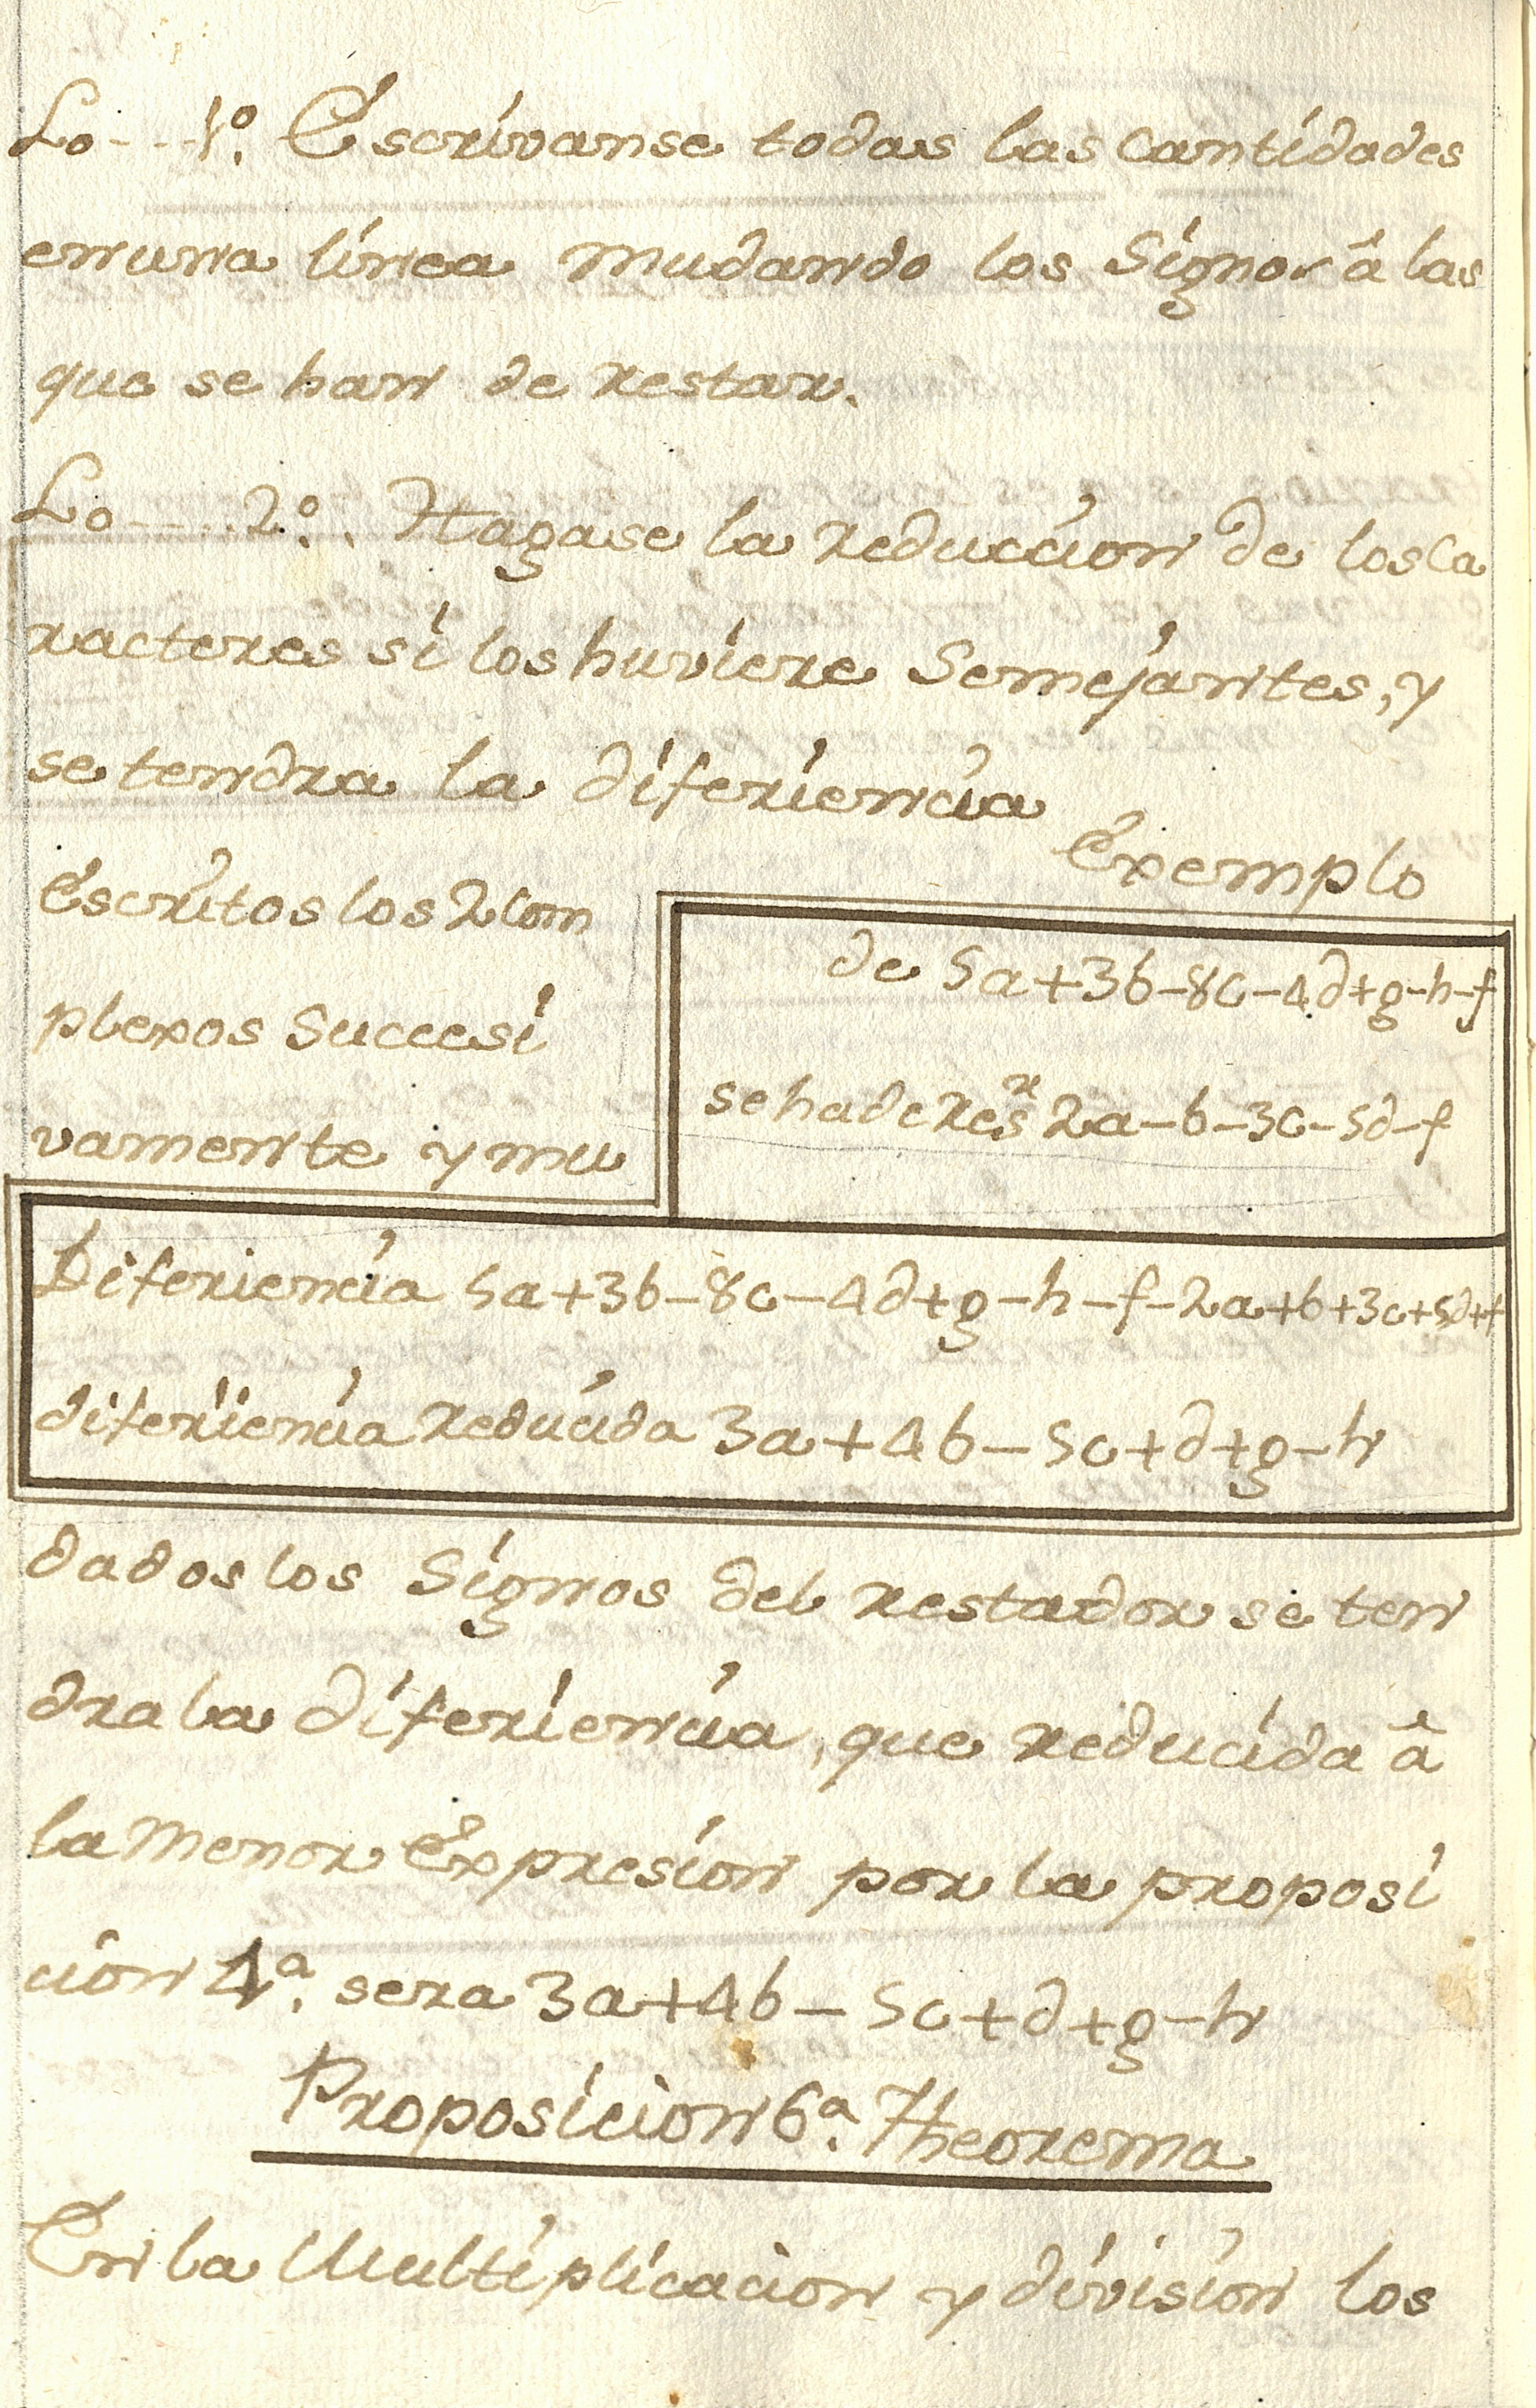 Lo - - - 1º. Escrivanse todas las cantidades
en una linea mudando los Signos â las
que se han de restar.
Lo - - - . 2º. . Hagase la reduccion de los Ca
racteres si los huviere Semejantes, y
se tendra la diferiencia
Exemplo
Escritos los 2 Com
plexos Succesi
vamente y mu
de 5a+3b-8c-4d+g-h-f
se ha de resʳ 2a-b-3c-5d-f
Diferiencia 5a+3b-8c-4d+g-h-f-2a+b+3c+5d+f
diferiencia reducida 3a+4b-5c+d+g-h
dados los Signos del restador se ten
dra la diferiencia, que reducida â
la menor Expresion por la proposi
cion 4ª. sera 3a+4b-5c+d+g-h
Proposicion 6ª. Theorema
En la Multiplicacion y division los